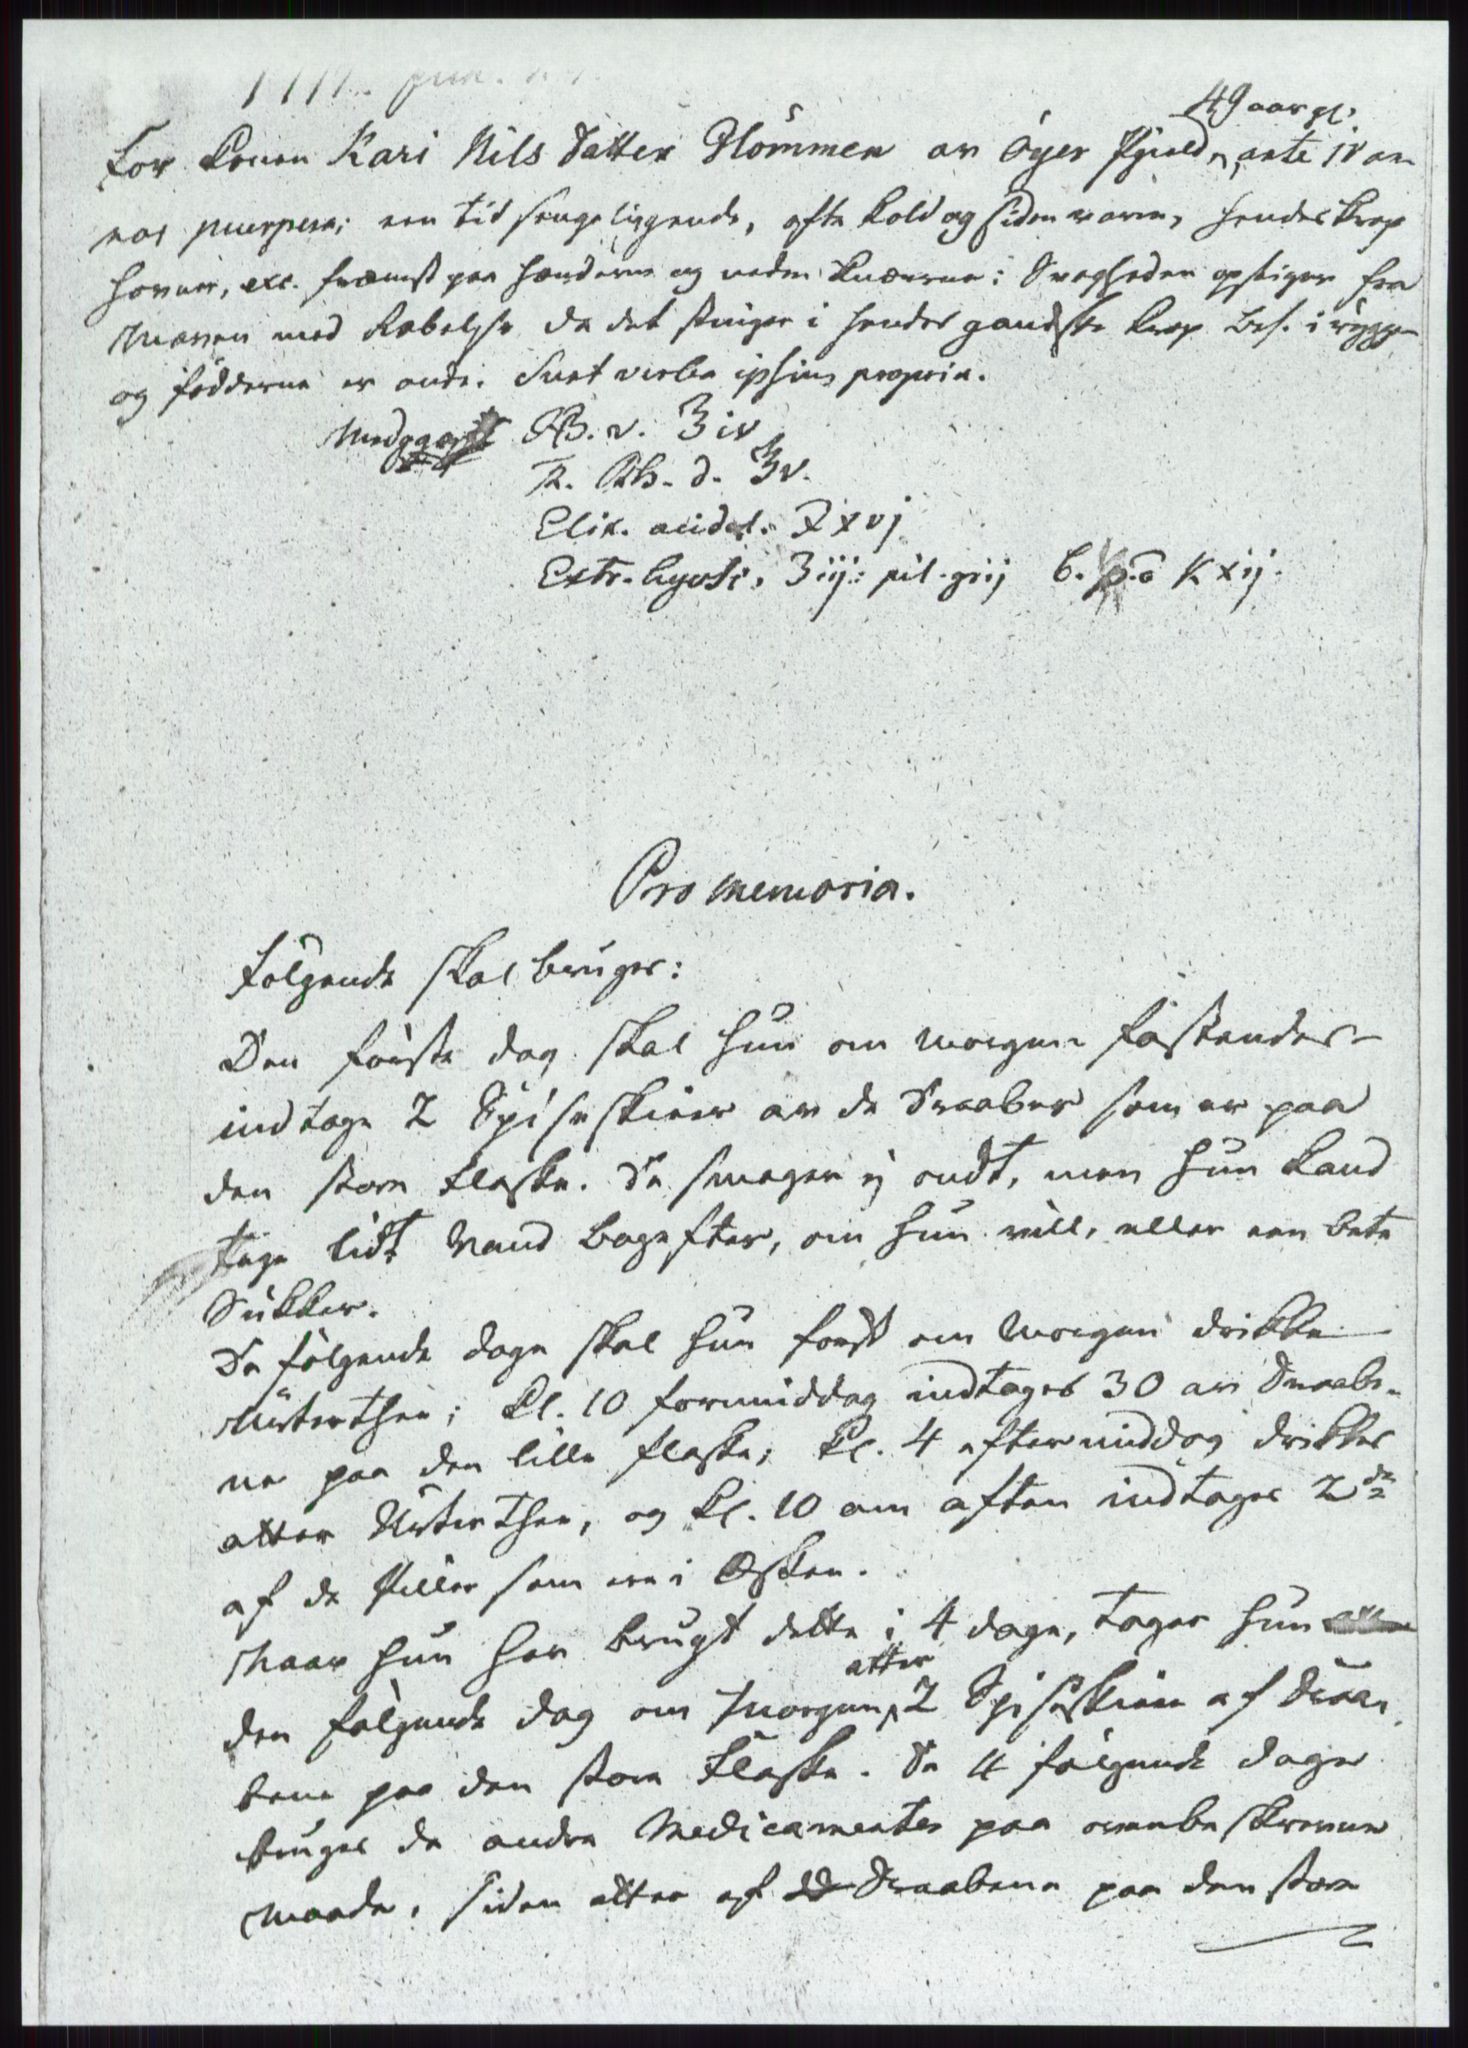 49 aar gl.
For Konen Kari Nils Datter Glömmen av Öyer Fjeld, ante iv an
nos puerpera; een tid sengeliggende, ofte kold og siden varm, hendes krop
hovner, exc. fræmst paa Hænderne og neden Knæerne: Svagheden opstiger fra
Maven med Rabelse da det stinger i hendes gandske krop bes. i rygge
og födderne er onde. Sunt verba ipsius propria.
Medgaves ℞. v. ℥iv
R. Rh. d. ℥v.
Elix. acid. ʒxvj
Extr. ʒiij: pil. grij C. p. a K xij.
Pro memoria.
Fölgende skal bruges:
Den förste dag skal hun om Morgen fastendes
indtage 2 Spiseskier av de Draaber som er paa
den store Flaske. De smager ej ondt, men hun kand
tage lidt Vand bagefter, om hun vill, eller een bete
Sukker.
De fölgende dage skal hun först om Morgen drikke
Urtethee; kl. 10 formiddag indtages 30 av Draabe-
ne paa den lille flaske; kl. 4 eftermiddag drikkes
atter Urtethee, og kl. 10 om aften indtages 2de
af de Piller som ere i Æsken.
Naar hun har brugt dette i 4 dage, tager hun
den fölgende dag om Morgen atter 2 Spiseskier af Draa-
bene paa den store Flaske. De 4 fölgende dage
bruges de andre Medicamenter paa ovenbeskrevne
Maade, siden atter af Draabene paa den store